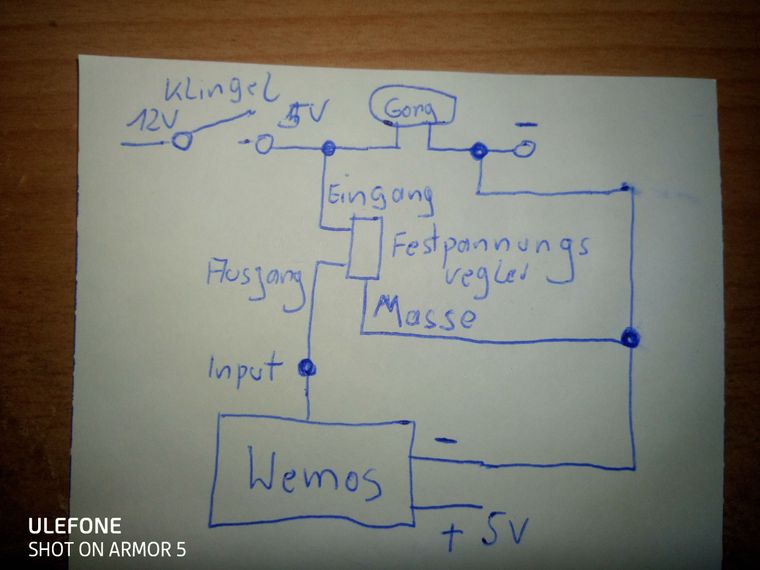 Klingel
12V
5V
Gong
−
Eingang
Festpannungs
regler
Ausgang
Masse
Input
−
Wemos
+ 5V
ULEFONE
SHOT ON ARMOR 5